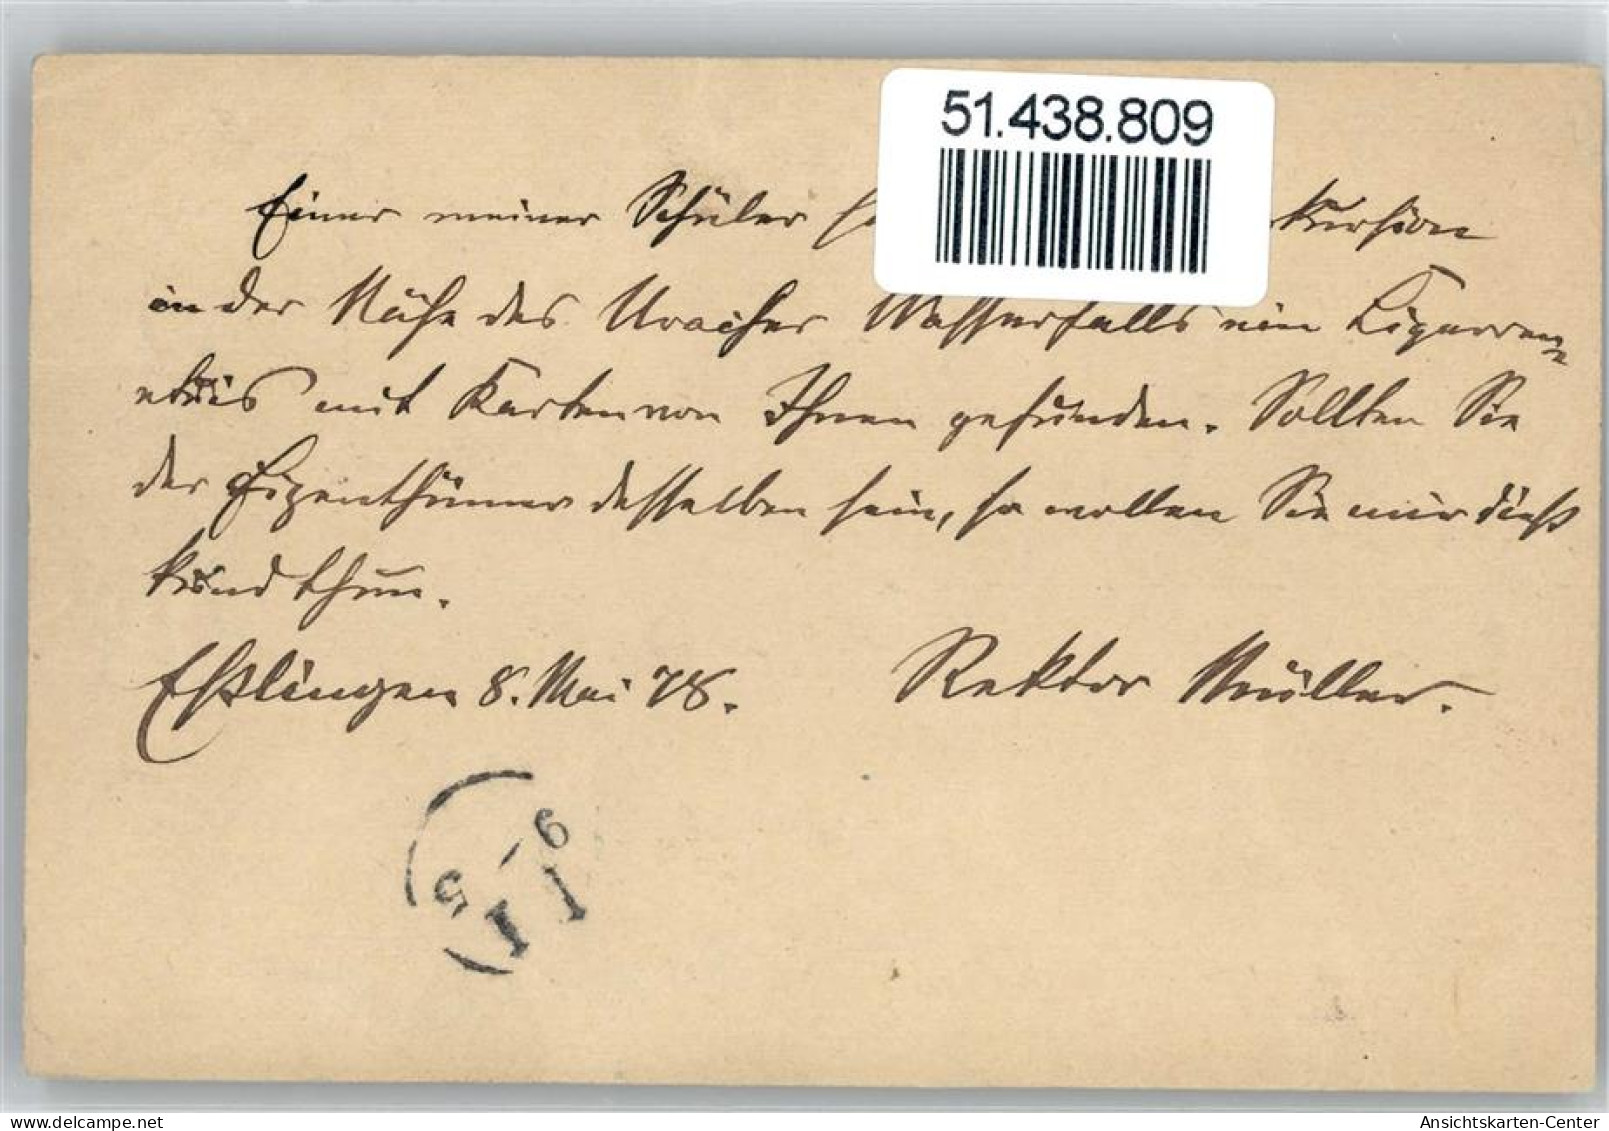 51.438.809
Einer meiner Schüler ha kursion
in der Nähe des Uracher Wasserfalls ein Cigarren=
etuis mit Karten von Ihnen gefunden. Sollten Sie
der Eigenthümer desselben sein, so wollen Sie mir dieß
kund thun.
Eßlingen 8. Mai 78. Rektor Müller.
9
5
II
Ansichtskarten-Center